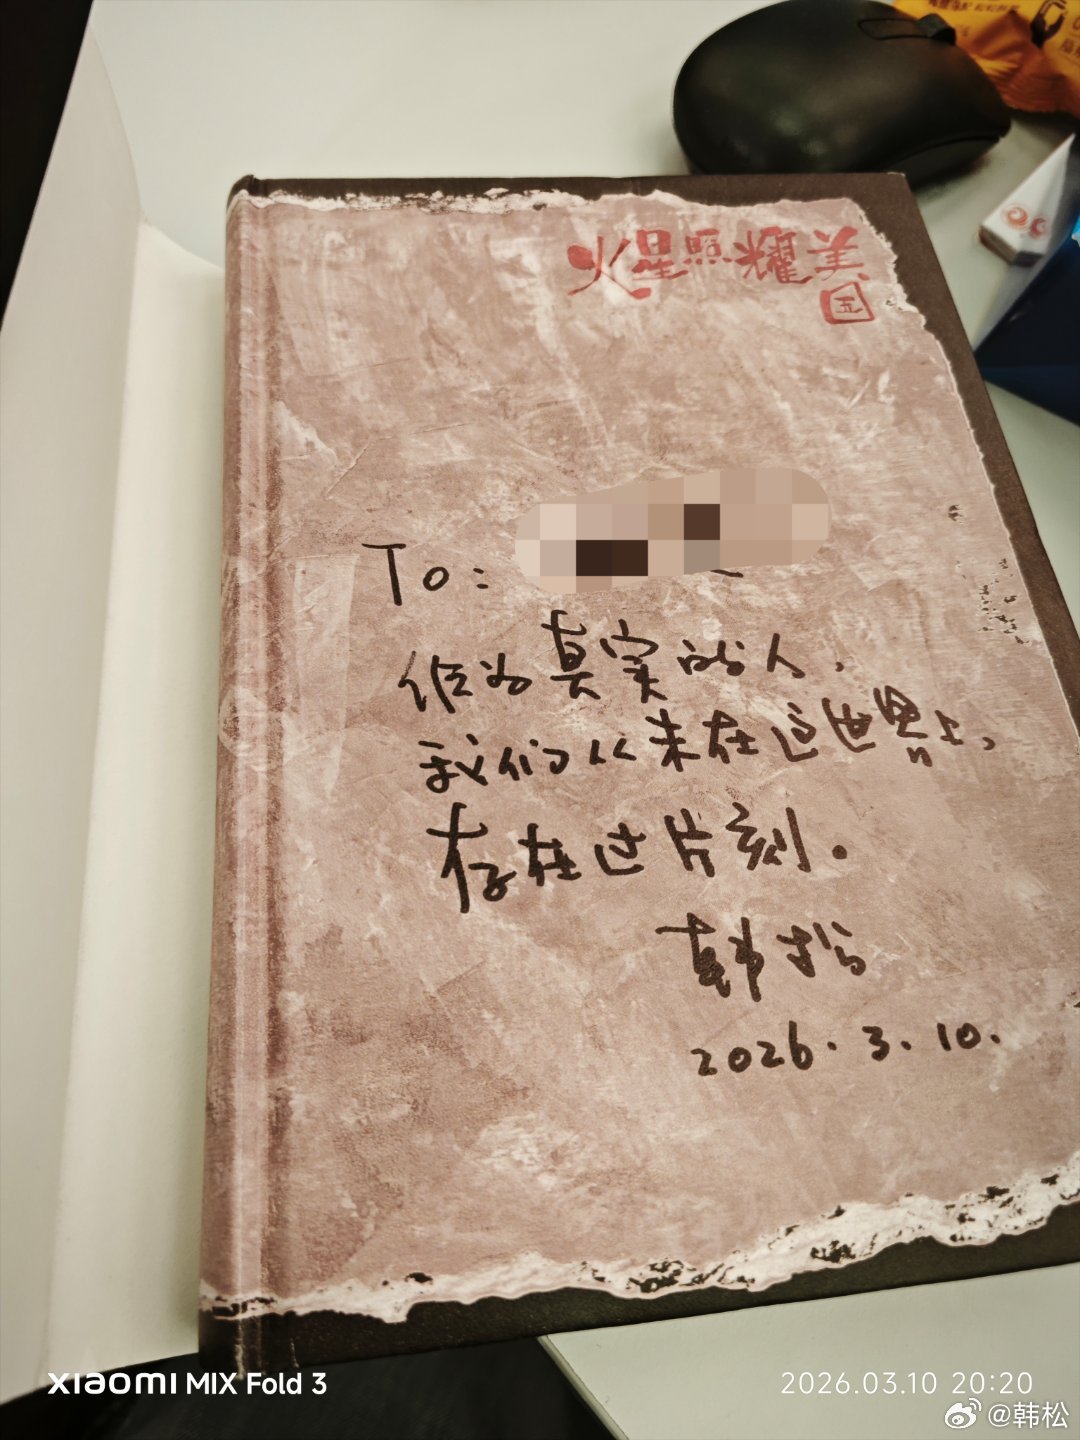 火星照耀美
国
To:
作为真实的人,
我们从未在这世界上,
存在过片刻。
韩松
2026.3.10.
XIAOMI MIX Fold 3
2026.03.10 20:20
@韩松